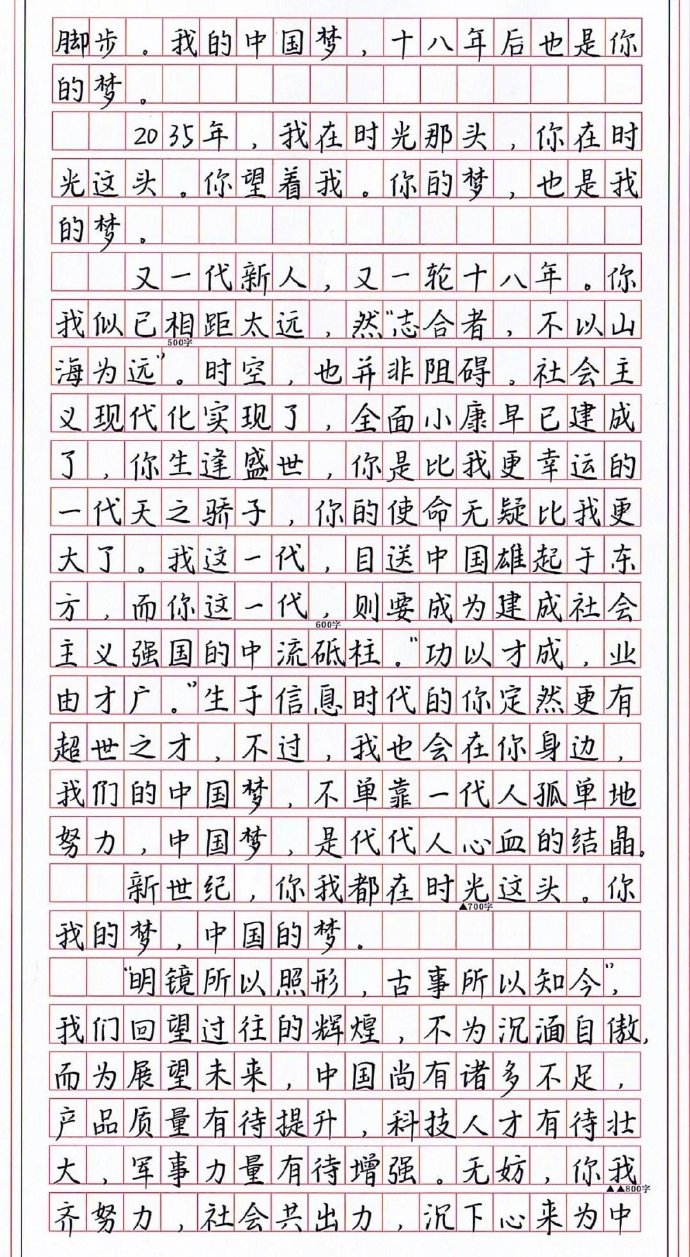 脚步。我的中国梦，十八年后也是你
的梦。
2035年，我在时光那头，你在时
光这头。你望着我。你的梦，也是我
的梦。
又一代新人，又一轮十八年。你
我似已相距太远，然“志合者，不以山
500字
海为远”。时空，也并非阻碍。社会主
义现代化实现了，全面小康早已建成
了，你生逢盛世，你是比我更幸运的
一代天之骄子，你的使命无疑比我更
大了。我这一代，目送中国雄起于东
方，而你这一代，则要成为建成社会
600字
主义强国的中流砥柱。“功以才成，业
由才广。”生于信息时代的你定然更有
超世之才，不过，我也会在你身边，
我们的中国梦，不单靠一代人孤单地
努力，中国梦，是代代人心血的结晶。
新世纪，你我都在时光这头。你
▲700字
我的梦，中国的梦。
“明镜所以照形，古事所以知今”，
我们回望过往的辉煌，不为沉湎自傲，
而为展望未来，中国尚有诸多不足，
产品质量有待提升，科技人才有待壮
大，军事力量有待增强。无妨，你我
▲▲800字
齐努力，社会共出力，沉下心来为中